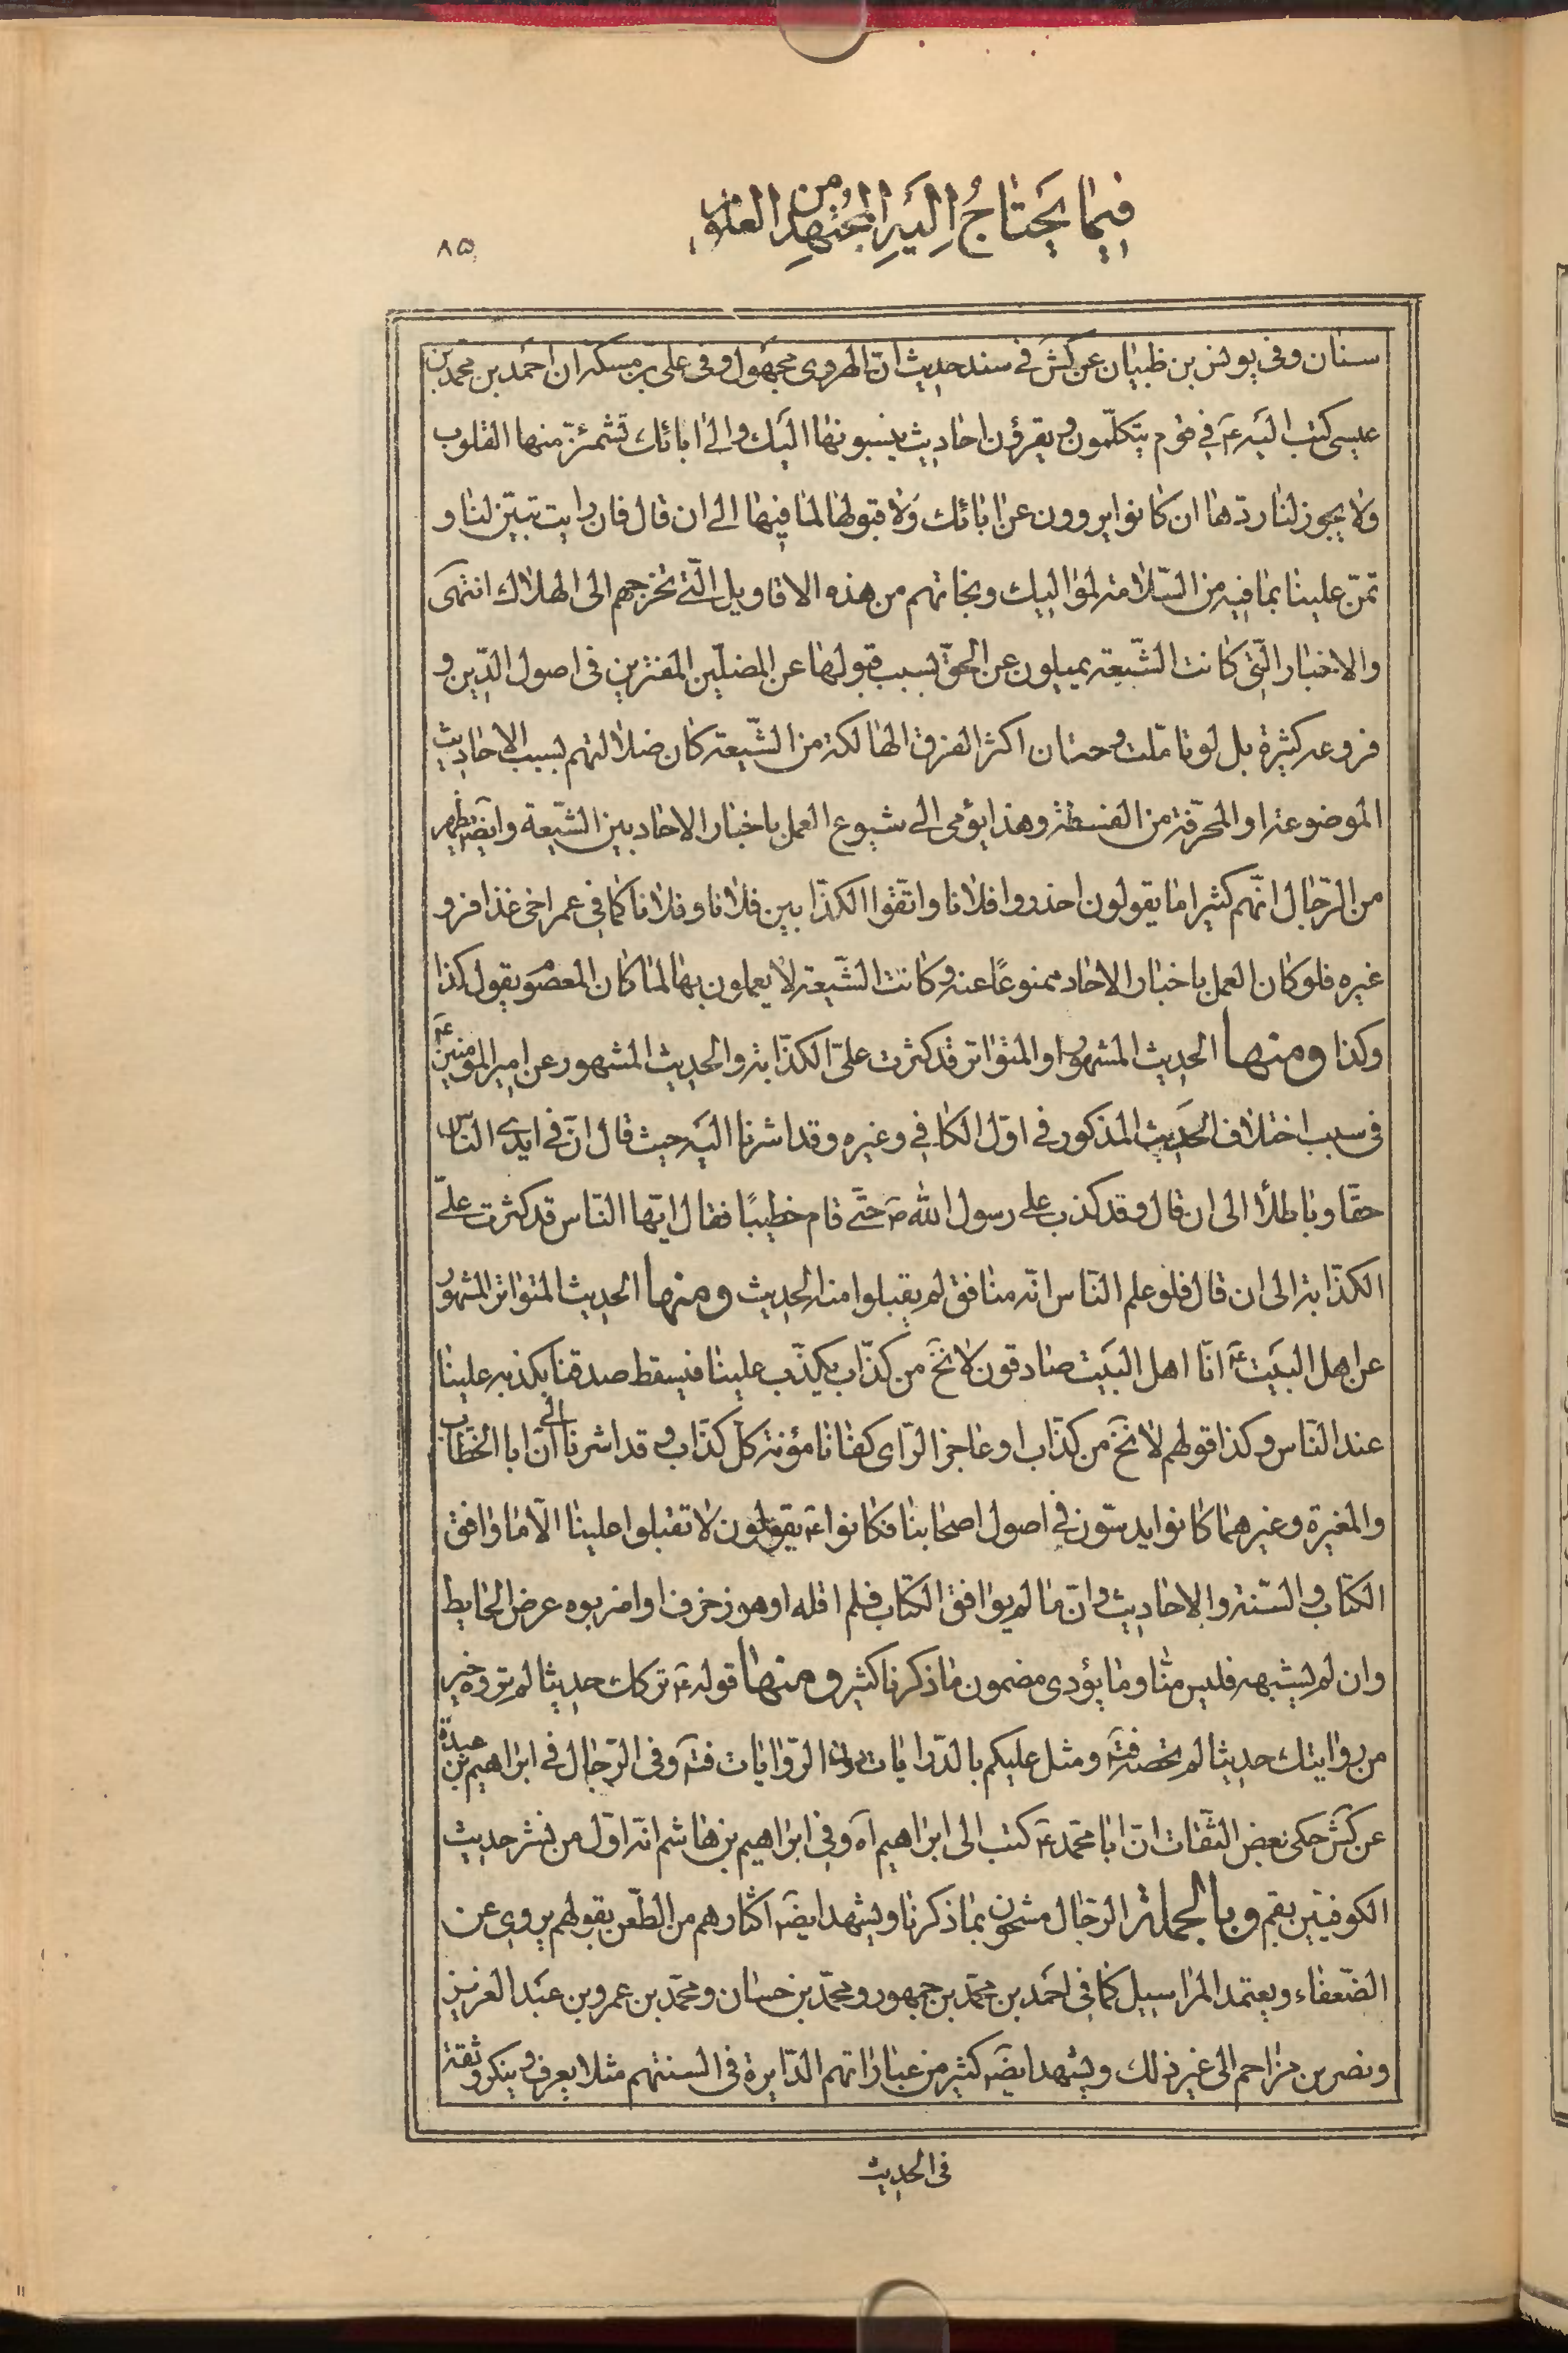 فيما يحتاج اليه المجتهد من العلوم
٨٥
سنان وفى يونس بن ظبيان عن كش فى سند حديث انّ الهروى مجهول وفى على بن مسكه ان احمد بن محمد بن
عيسى كتب اليه ع فى قوم يتكلّمون ويقرؤن احاديث ينسبونها اليك والى ابائك تشمئزّ منها القلوب
ولا يجوز لنا ردّها ان كانوا يروون عن ابائك ولا قبولها لما فيها الى ان قال فان رايت تبيّن لنا و
تمنّ علينا بما فيه من السّلامة لمواليك ونجاتهم من هذه الاقاويل الّتى تخرجهم الى الهلاك انتهى
والاخبار الّتى كانت الشّيعة يميلون عن الحقّ بسبب قبولها عن المضلّين المفترين فى اصول الدّين و
فروعه كثيرة بل لو تامّلت وجدت ان اكثر الفرق الهالكة من الشّيعة كان ضلالتهم بسبب الاحاديث
الموضوعة او المحرّفة من الفسقة وهذا يؤمى الى شيوع العمل باخبار الاحاد بين الشّيعة وايضا يظهر
من الرّجال انّهم كثيرا ما يقولون احذروا فلانا واتّقوا الكذّابين فلانا وفلانا كما فى عمر اخى عذافر و
غيره فلو كان العمل باخبار الاحاد ممنوعًا عنه وكانت الشّيعة لا يعملون بها لما كان المعصوم يقول كذا
وكذا ومنها الحديث المشهور او المتواتر قد كثرت علىّ الكذّابة والحديث المشهور عن امير المؤمنين ع
فى سبب اختلاف الحديث المذكور فى اوّل الكافى وغيره وقد اشرنا اليه حيث قال انّ فى ايدى النّاس
حقّا وباطلًا الى ان قال وقد كذب على رسول الله ص حتّى قام خطيبًا فقال ايّها النّاس قد كثرت علىّ
الكذّابة الى ان قال فلو علم النّاس انّه منافق لم يقبلوا منه الحديث ومنها الحديث المتواتر المشهور
عن اهل البيت ع انّا اهل البيت صادقون لا نخ من كذّاب يكذّب علينا فيسقط صدقنا بكذبه علينا
عند النّاس وكذا قولهم لا نخ من كذّاب او عاجز الرّاى كفانا مؤنة كلّ كذّاب وقد اشرنا الى انّ ابا الخطّاب
والمغيرة وغيرهما كانوا يدسّون فى اصول اصحابنا فكانوا ع يقولون لا تقبلوا علينا الّا ما وافق
الكتاب والسّنة والاحاديث وانّ ما لم يوافق الكتاب فلم اقله او هو زخرف او اضربوه عرض الحايط
وان لم يشبهه فليس منّا وما يؤدى مضمون ما ذكرنا كثير ومنها قوله ع تركك حديثا لم تروه خير
من روايتك حديثا لم تحصه فتة ومثل عليكم بالدّرايات دون الرّوايات فتة وفى الرّجال فى ابراهيم بن عبدة
عن كش حكى بعض الثّقات انّ ابا محمّد ع كتب الى ابراهيم اه وفى ابراهيم بن هاشم انّه اوّل من نشر حديث
الكوفيّين بقم وبالجملة الرّجال مشحون بما ذكرنا ويشهد ايضا اكثارهم من الطّعن بقولهم يروى عن
الضّعفاء ويعتمد المراسيل كما فى احمد بن محمّد بن جمهور ومحمّد بن حسان ومحمّد بن عمرو بن عبد العزيز
ونصر بن مزاحم الى غير ذلك ويشهد ايضا كثير من عباراتهم الدّايرة فى السنتهم مثلا يعرف وينكر وثقة
فى الحديث